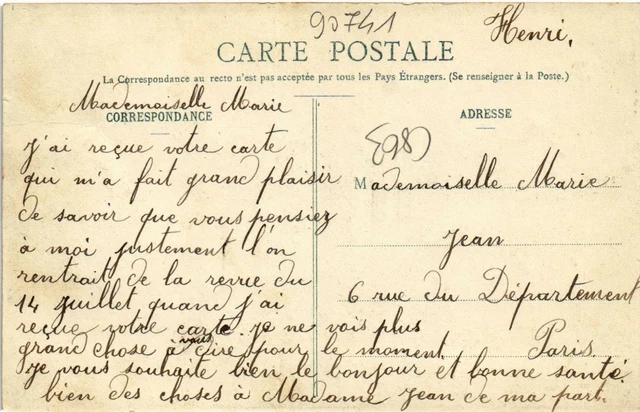 90741
Henri,
CARTE POSTALE
La Correspondance au recto n'est pas acceptée par tous les Pays Étrangers. (Se renseigner à la Poste.)
CORRESPONDANCE
Mademoiselle Marie
j'ai reçue votre carte
qui m'a fait grand plaisir
de savoir que vous pensiez
à moi justement l'on
rentrait de la revue du
14 juillet quand j'ai
reçue votre carte. je ne vois plus
grand chose à vous dire pour le moment
je vous souhaite bien le bonjour et bonne santé.
bien des choses à Madame Jean de ma part.
ADRESSE
Mademoiselle Marie
Jean
6 rue du Département
Paris.